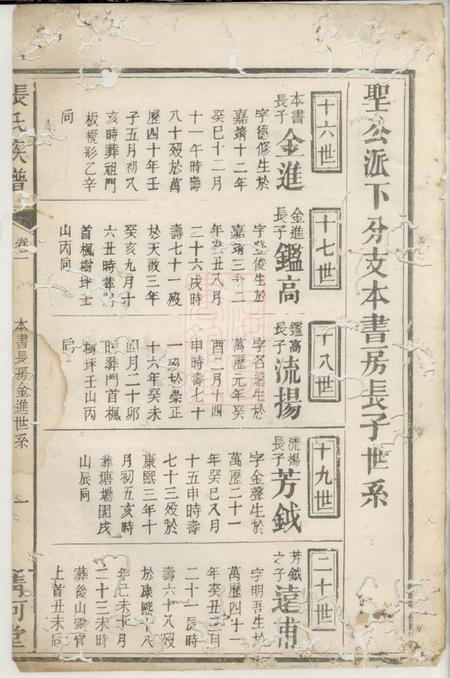 聖公派下分支本書房長子世系
十六世
本書
長子
金進
字德修生於
嘉靖十二年
癸巳十二月
十一午時壽
八十歿於萬
歷四十年壬
子五月初八
亥時葬祖門
板櫈形乙辛
向
十七世
金進
長子
鑑高
字登俊生於
嘉靖三十二
年癸丑八月
二十六戌時
壽七十一歿
於天啟三年
癸亥九月十
六丑時葬
首楓樹坪壬
山丙向
十八世
鑑高
長子
流揚
字名遠生於
萬歷元年癸
酉二月十四
申時壽七十
一歿於崇正
十六年癸未
四月二十卯
時葬門首楓
樹坪壬山丙
向
十九世
流揚
長子
芳鉞
字金聲生於
萬歷二十一
年癸巳八月
十五申時壽
七十三歿於
康熙三年十
月初五亥時
葬塘塲園戌
山辰向
二十世
芳鉞
之子
遠甫
字明吾生於
萬歷四十一
年癸丑二月
二十一辰時
壽六十八歿
於康熙十八
年己未十月
二十三未時
葬後山
上首丑未向
張氏族譜
卷一
本書長房金進世系
一
清河堂